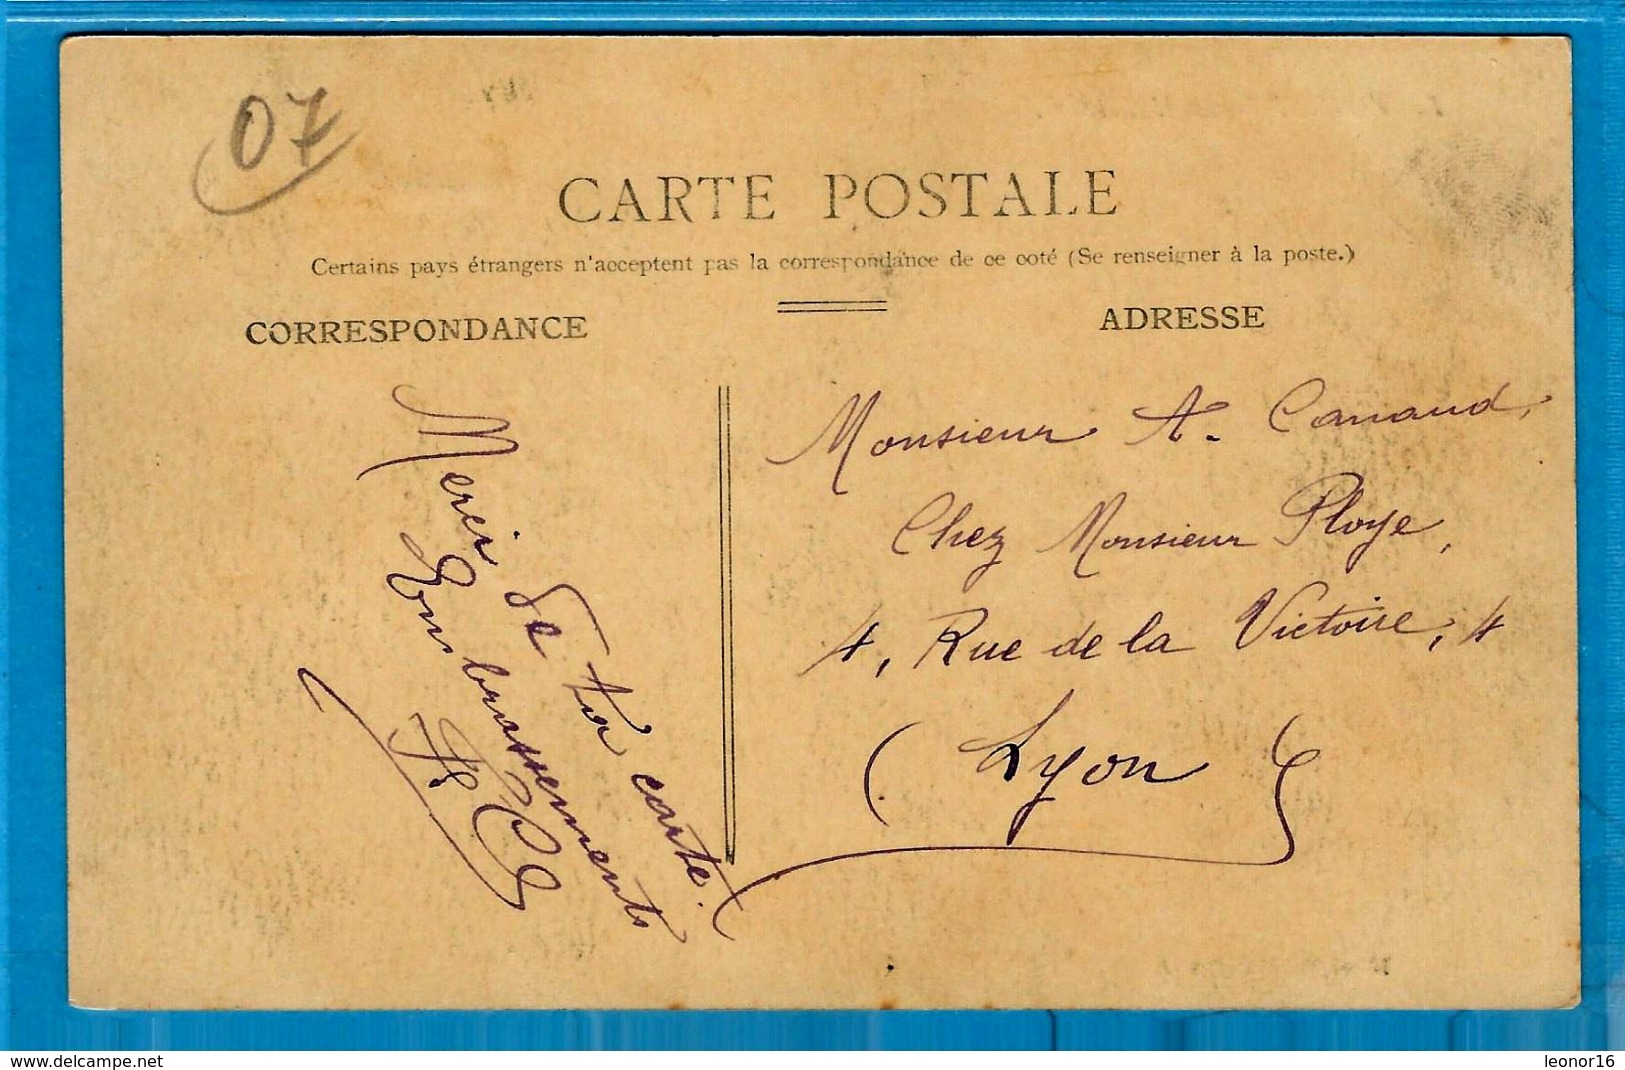 07
CARTE POSTALE
Certains pays étrangers n'acceptent pas la correspondance de ce coté (Se renseigner à la poste.)
CORRESPONDANCE
ADRESSE
Merci de ta carte.
Embrassements
Monsieur A. Canaud,
Chez Monsieur Ploye,
4, Rue de la Victoire, 4
(Lyon)
www.delcampe.net
leonor16